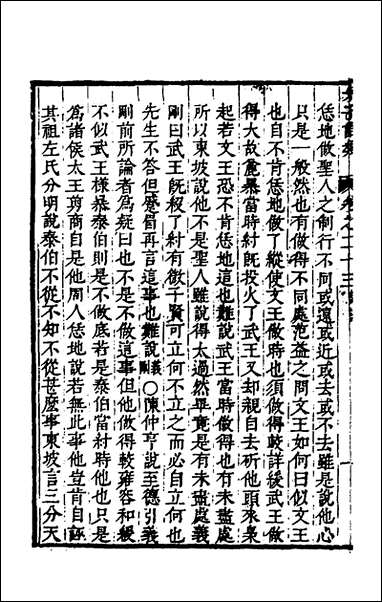 恁地做聖人之制行不同或遠或近或去或不去雖是說他心
只是一般然也有做得不同處范益之問文王如何曰似文王
也自不肯恁地做了縱使文王做時也須做得較詳緩武王做
得大故麄暴當時紂旣投火了武王又却親自去斫他頭來梟
起若文王恐不肯恁地這也難說武王當時做得也有未盡處
所以東坡說他不是聖人雖說得太過然畢竟是有未盡處義
剛曰武王旣殺了紂有微子賢可立何不立之而必自立何也
先生不答但蹙眉再言這事也難說義剛○陳仲亨說至德引義
剛前所論者為疑曰也不是不做這事但他做得較雍容和緩
不似武王樣暴泰伯則是不做底若是泰伯當紂時他也只是
為諸侯太王剪商自是他周人恁地說若無此事他豈肯自誣
其祖左氏分明說泰伯不從不知不從甚麽事東坡言三分天